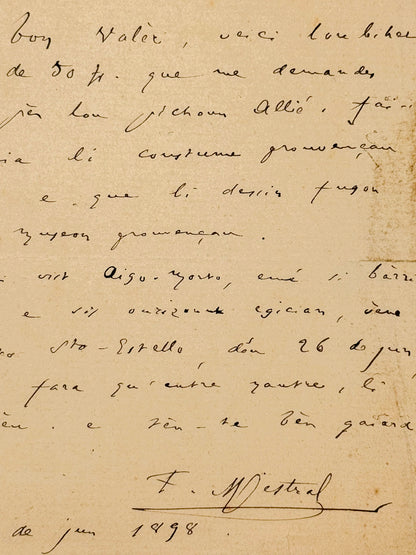 bon Valèr, veici lou bihet
de 50 fr. que me demandes
pèr lou pichoun Allié. Fai-
ia li coustume prouvençau
e que li dessin fugon
museon prouvençau.
vist Aigo-Morto, emé si bàrri
e sis ourizount egician, vène
Sto-Estello, dóu 26 de jun
fara qu'entre nautre, li
e tèn-te bèn gaiard
F. Mistral
de jun 1898.